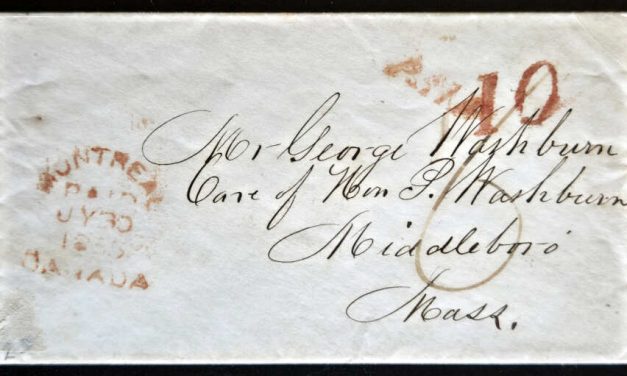 10
Mr George Washburn
Care of Hon P. Washburn
Middleboro
Mass.
6
MONTREAL
PAID
JY 30
CANADA